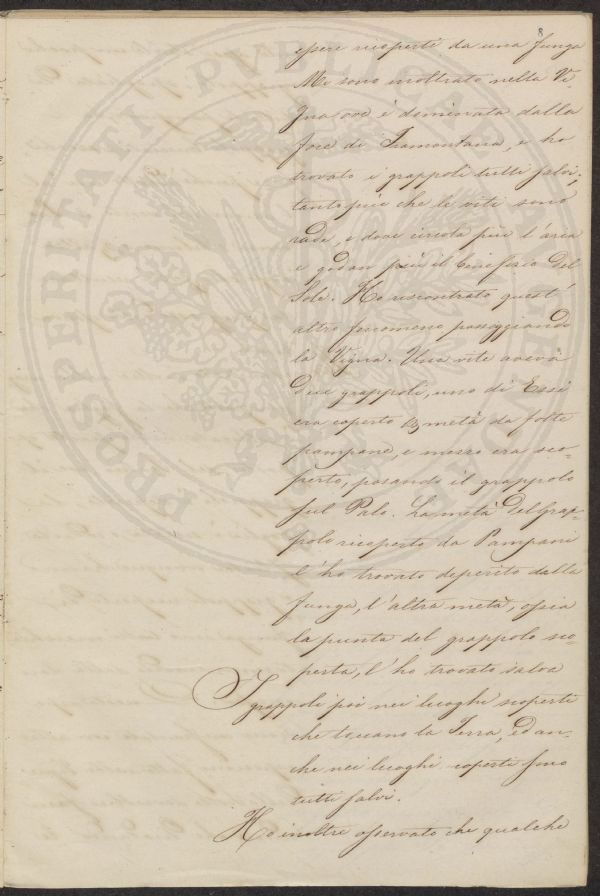 8
essere ricoperti da una funga
Mi sono inoltrato nella Vi-
gna ove è dominata dalla
foce di Tramontana, e ho
trovato i grappoli tutti salvi;
tanto più che le viti sono
rade, e dove circola più l'area
e godon più il beneficio del
Sole. Ho riscontrato quest'
altro fenomeno passeggiando
la Vigna. Una vite aveva
due grappoli, uno di Essi
era coperto metà da folte
pampane, e mezzo era sco-
perto, posando il grappolo
sul Palo. La metà del Grap-
polo ricoperto da Pampani
l'ho trovato deperito dalla
funga, l'altra metà, ossia
la punta del grappolo sco-
perta, l'ho trovata salva
I grappoli poi nei luoghi scoperti
che toccano la Terra, ed an-
che nei luoghi coperti sono
tutti salvi.
Ho inoltre osservato che qualche
PROSPERITATI PUBLICAE AUGENDAE